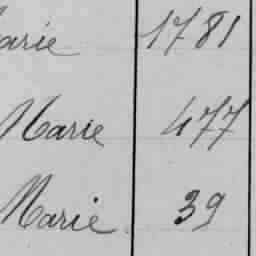 arie 1781
Marie 477
Marie 39